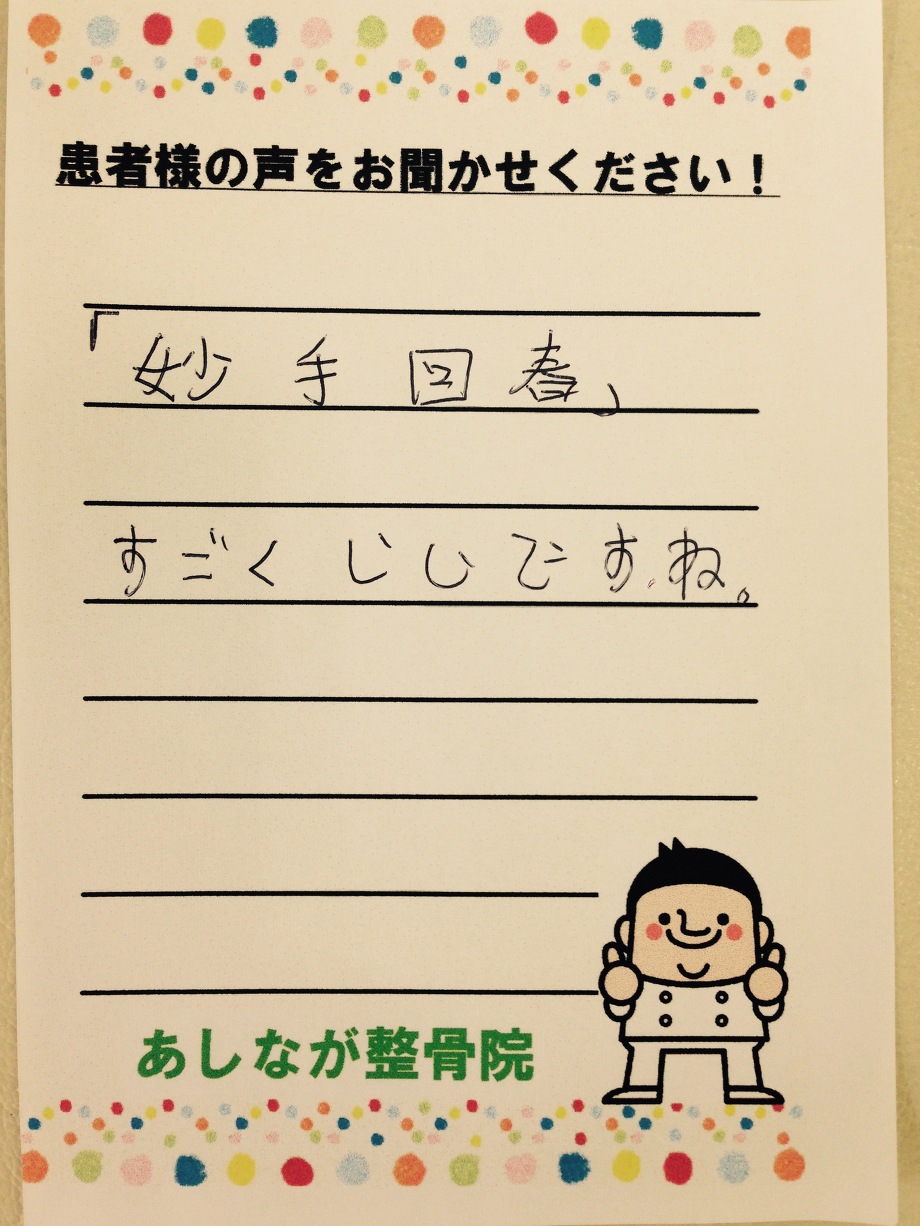 患者様の声をお聞かせください！
「妙手回春」
すごくいいですね。
あしなが整骨院